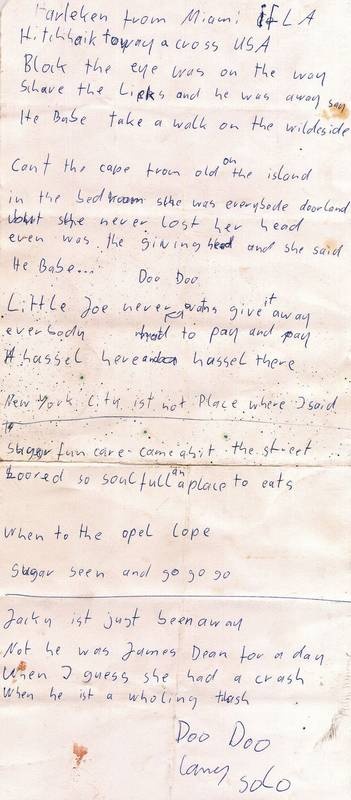 Harleken from Miami FLA
Hitchhaik toway across USA
Block the eye was on the way
Schave the Lieks and he was away say
He Babe take a walk on the wildeside
Cant the cape from old on the island
in the bedroom sthe was everybode doorland
but she never lost her head
even was the giving head and she said
He Babe...
Doo Doo
Little Joe never give it away
everybody had to pay and pay
A hassel here and hassel there
New York City ist not Place where I said
sugar fun care came ahit the street
Loored so soulfull an a place to eats
when to the opel Lope
sugar seen and go go go
Jacky ist just been away
Not he was James Dean for a day
When I guess she had a crash
When he ist a wholing thash
Doo Doo
Long solo